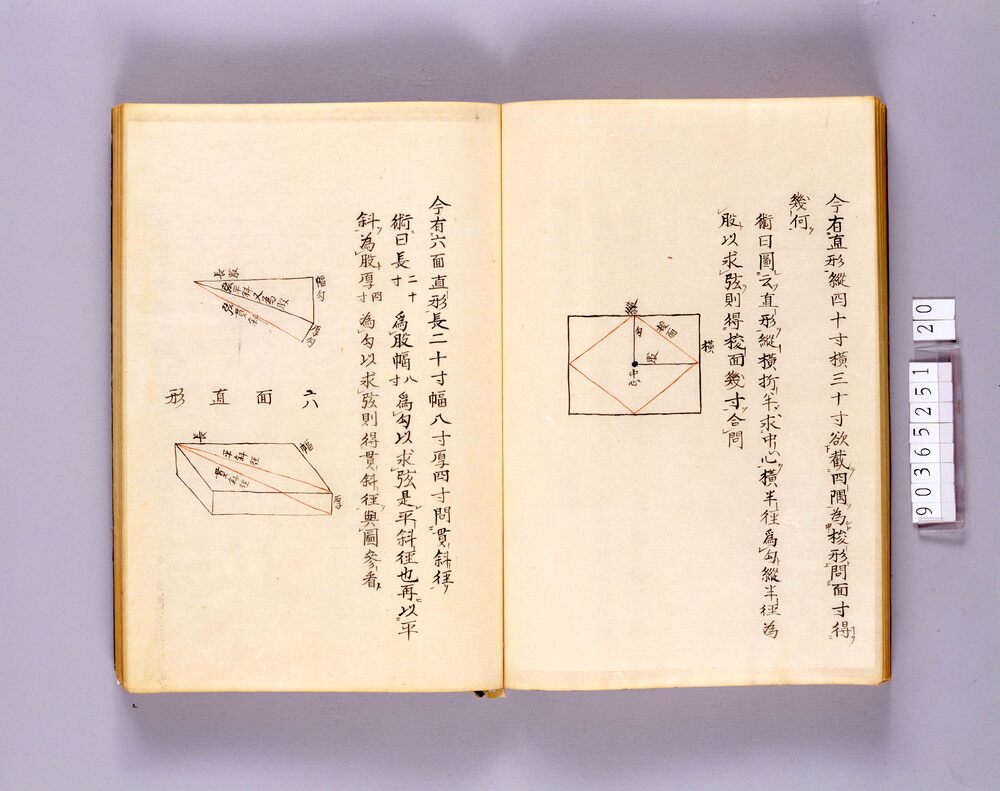 今有直形縱四十寸横三十寸欲截四隅為梭形問面寸得
幾何
術曰圖云直形縱横折半求中心横半径為勾縱半径為
股以求弦則得梭面幾寸合問
縱
横
勾
梭面
股
中心
今有六面直形長二十寸幅八寸厚四寸問貫斜径
術曰長二十寸為股幅八寸為勾以求弦是平斜径也再以平
斜為股厚四寸為勾以求弦則得貫斜径與圖參看
長股
幅勾
弦平斜又為股
弦貫斜
厚勾
六面直形
長
幅
平斜径
貫斜径
厚
20
90365251